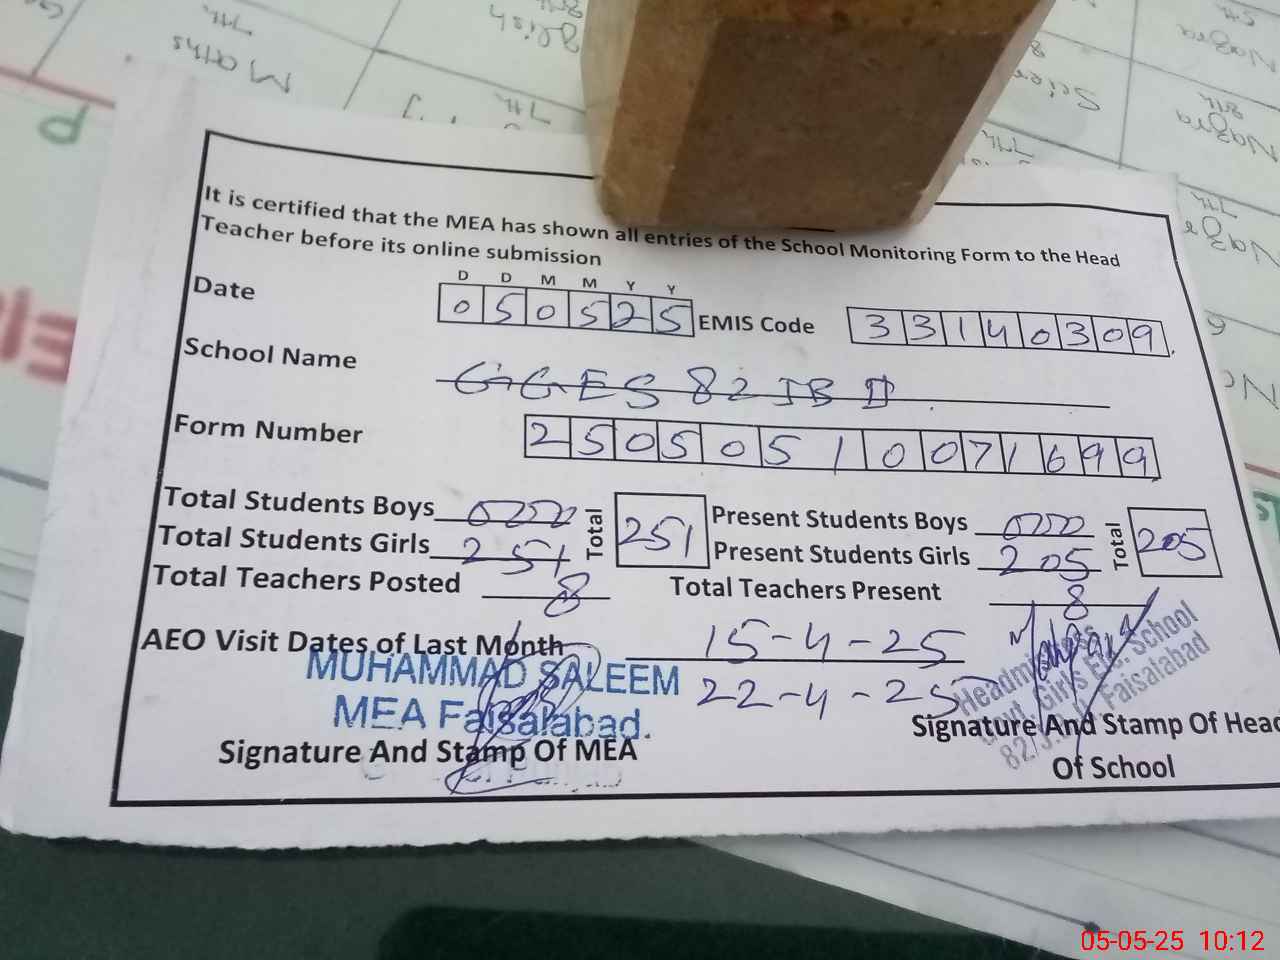 It is certified that the MEA has shown all entries of the School Monitoring Form to the Head
Teacher before its online submission
D D M M Y Y
Date 0 5 0 5 2 5 EMIS Code 3 3 1 4 0 3 0 9
School Name GGES 82 JB II
Form Number 2 5 0 5 0 5 1 0 0 7 1 6 9 9
Total Students Boys Total 251 Present Students Boys Total 205
Total Students Girls 251 Present Students Girls 205
Total Teachers Posted 8 Total Teachers Present 8
AEO Visit Dates of Last Month 15-4-25
22-4-25
MUHAMMAD SALEEM
MEA Faisalabad.
Signature And Stamp Of MEA
Headmistress
Govt. Girls Ele. School
Faisalabad
Signature And Stamp Of Head
Of School
Maths
7th
7th
8th
Nagra
05-05-25 10:12